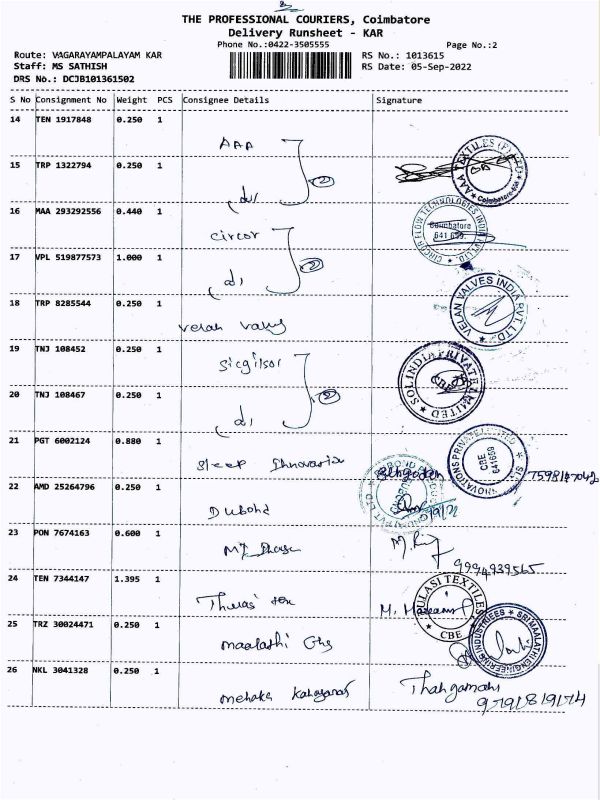 THE PROFESSIONAL COURIERS, Coimbatore
Delivery Runsheet - KAR
Phone No.:0422-3505555
Page No.:2
Route: VAGARAYAMPALAYAM KAR
RS No.: 1013615
Staff: MS SATHISH
RS Date: 05-Sep-2022
DRS No.: DCJB101361502
S No Consignment No Weight PCS Consignee Details Signature
14 TEN 1917848 0.250 1
AAA
AAA TEXTILES (P) LTD
Coimbatore
15 TRP 1322794 0.250 1
2
16 MAA 293292556 0.440 1
circor
CIRCOR FLOW TECHNOLOGIES INDIA PVT. LTD.
Coimbatore
641 659.
17 VPL 519877573 1.000 1
2
18 TRP 8285544 0.250 1
velan valves
VELAN VALVES INDIA PVT. LTD.
19 TNJ 108452 0.250 1
SOL INDIA PRIVATE LIMITED
CBE
20 TNJ 108467 0.250 1
2
21 PGT 6002124 0.880 1
Sleep Innovation
INNOVATIONS PRIVATE LIMITED
CBE
641659
22 AMD 25264796 0.250 1
23 PON 7674163 0.600 1
9994939565
24 TEN 7344147 1.395 1
THULASI TEXTILES
CBE
25 TRZ 30024471 0.250 1
maalathi Engg
SRI MAALATHI ENGINEERING INDUSTRIES
26 NKL 3041328 0.250 1
Thangamani